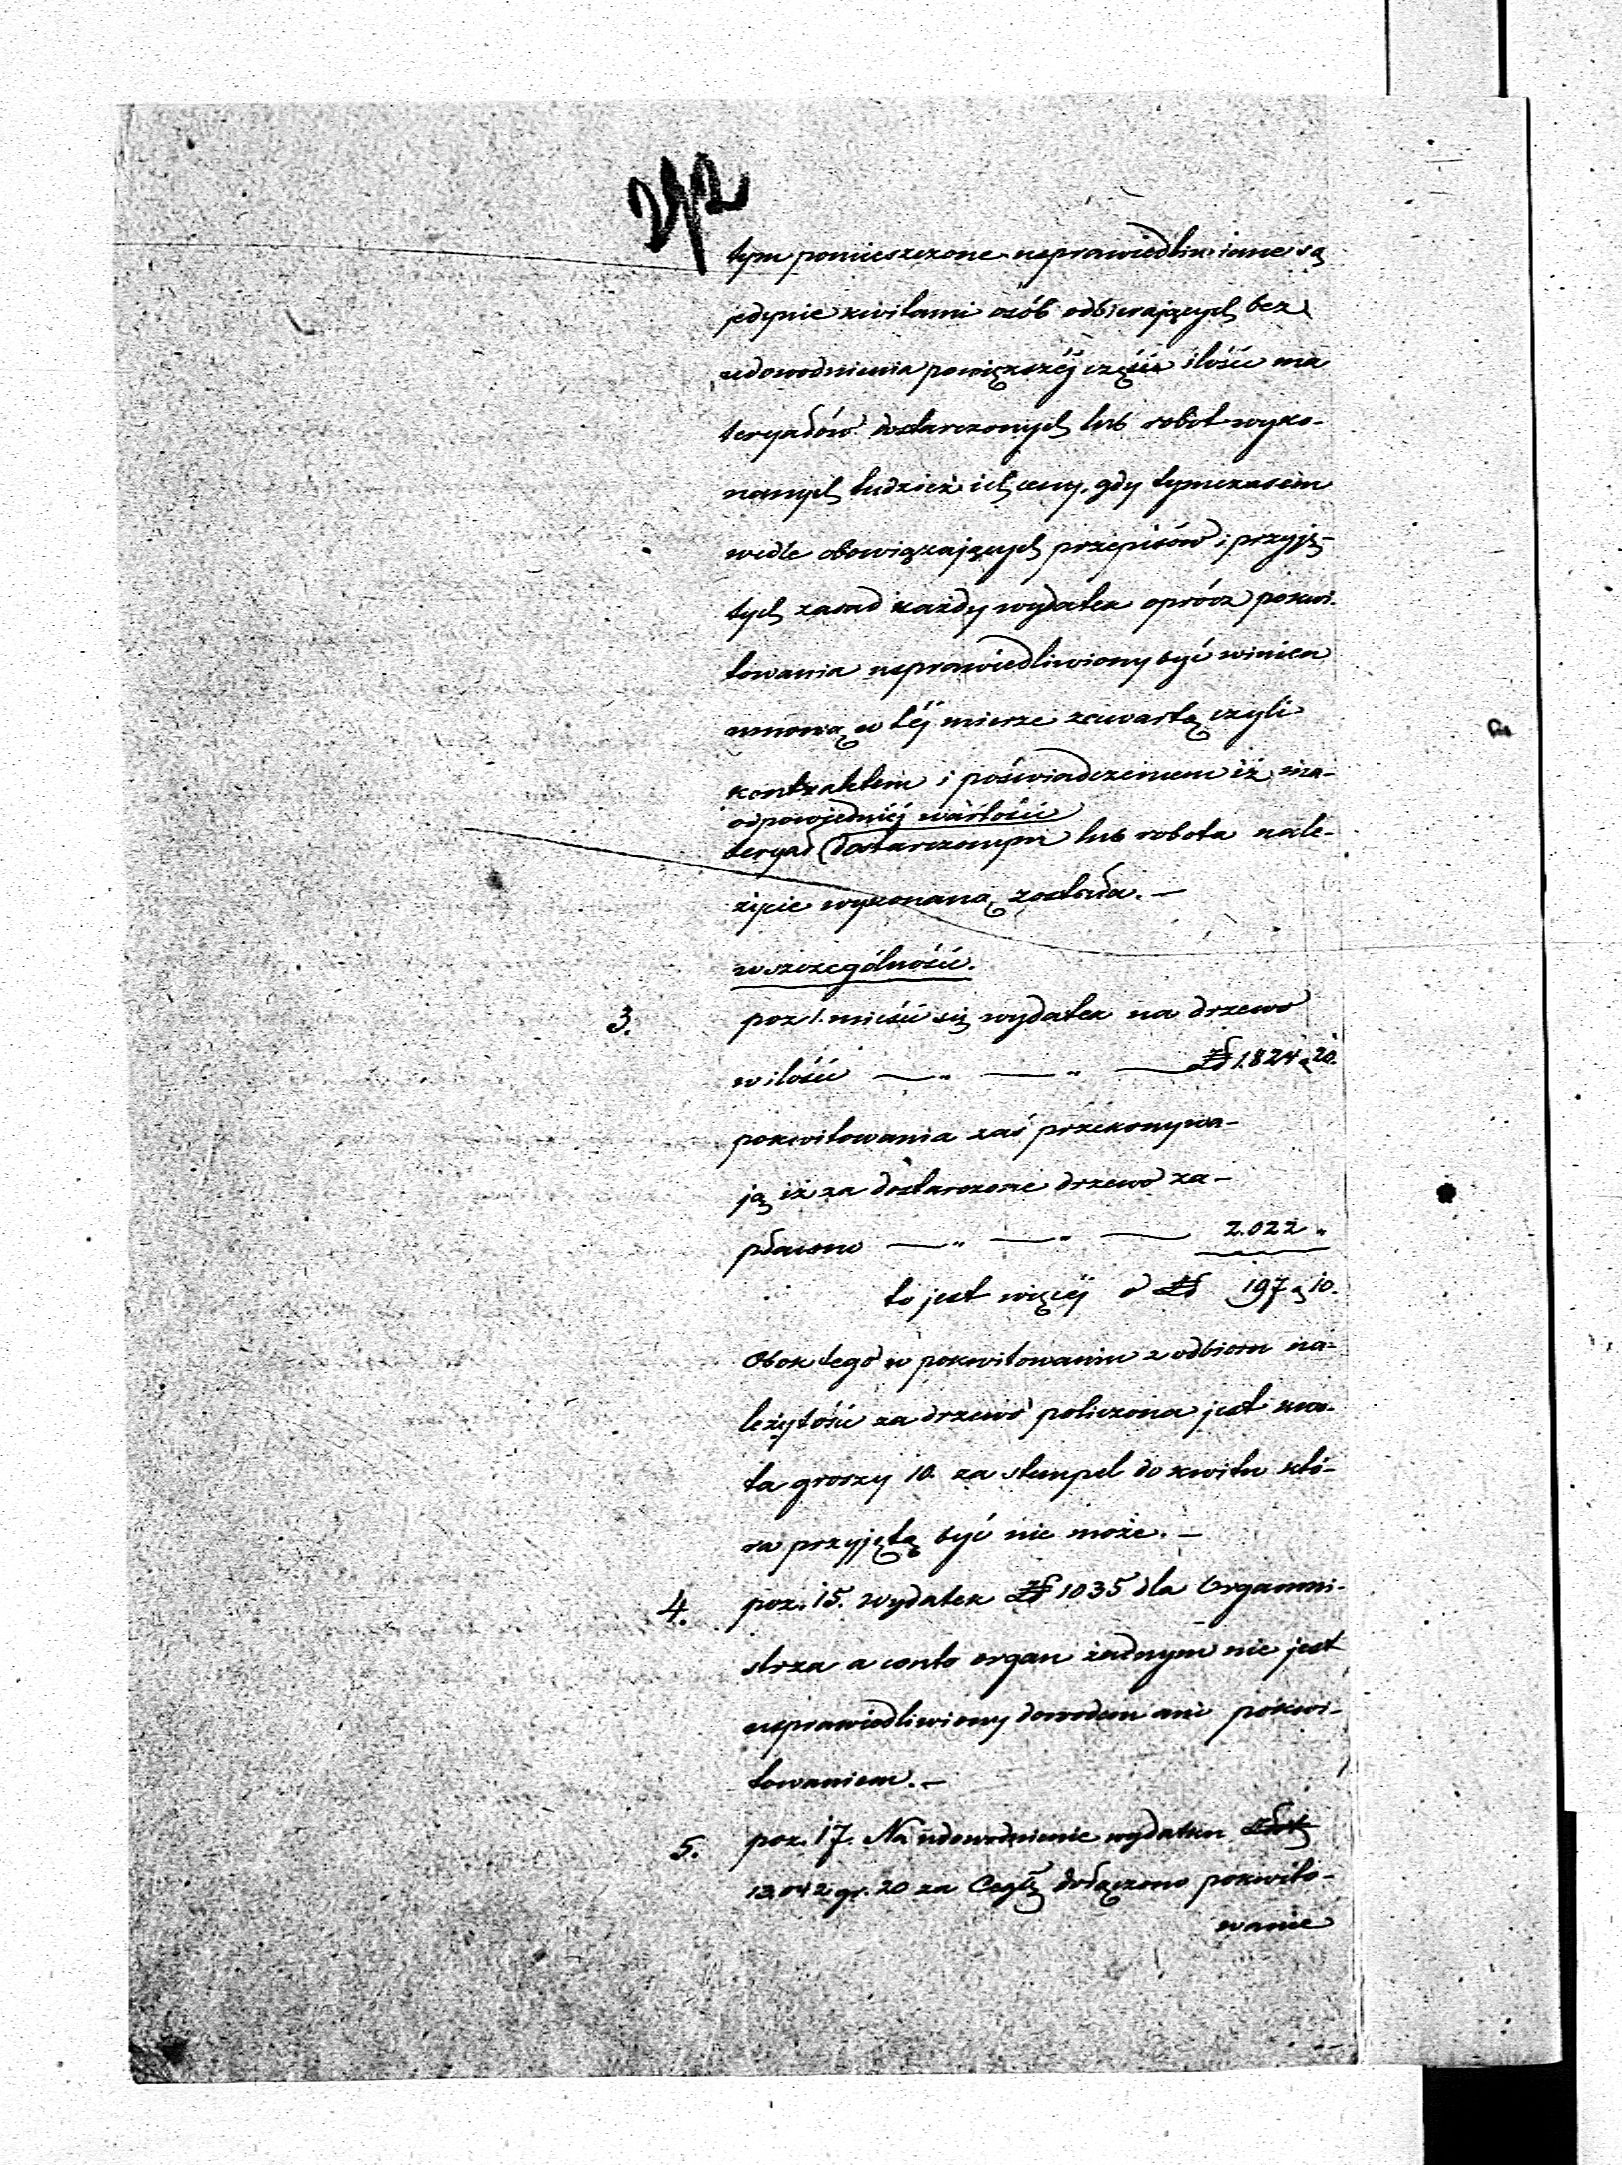 292
tym pomieszczone usprawiedliwione są
jedynie kwitami osób odbierających bez
udowodnienia powiększéj części ilości ma
teryałów dostarczonych lub robót wyko-
nanych tudzież ich ceny, gdy tymczasem
wedle obowiązających przepisów i przyję-
tych zasad każdy wydatek oprócz pokwi-
towania usprawiedliwiony być winien
umową w téj mierze zawartą czyli
kontraktem i poświadczeniem iż ma-
odpowiedniéj wartości
teryał dostarczonym lub robota nale-
życie wykonaną została. —
w szczególności.
3. poz 1. mieści się wydatek na drzewo
w ilości — „ — „ — Zł 1.824 g 20.
pokwitowania zaś przekonywa-
ją iż za dostarczone drzewo za-
płacono — „ — „ — 2.022 „
to jest więcéj o Zł 197 g 10.
Obok tego w pokwitowaniu z odbioru na-
leżytości za drzewo policzona jest kwo-
ta groszy 10. za stempel do kwitu któ-
ra przyjętą być nie może. —
4. poz. 15. Wydatek Zł 1035 dla Organmi-
strza a conto organ żadnym nie jest
usprawiedliwiony dowodem ani pokwi-
towaniem. —
5. poz. 17. Na udowodnienie wydatku
13.042 gr. 20 za Cegłę dołączono pokwito-
wanie